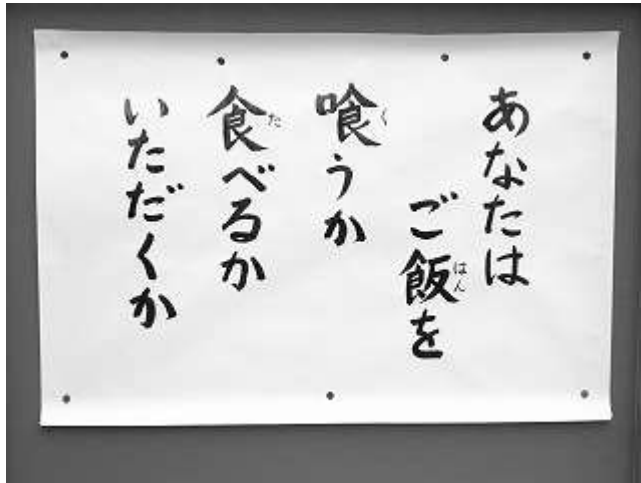 あなたは
ご飯を
喰うか
食べるか
いただくか